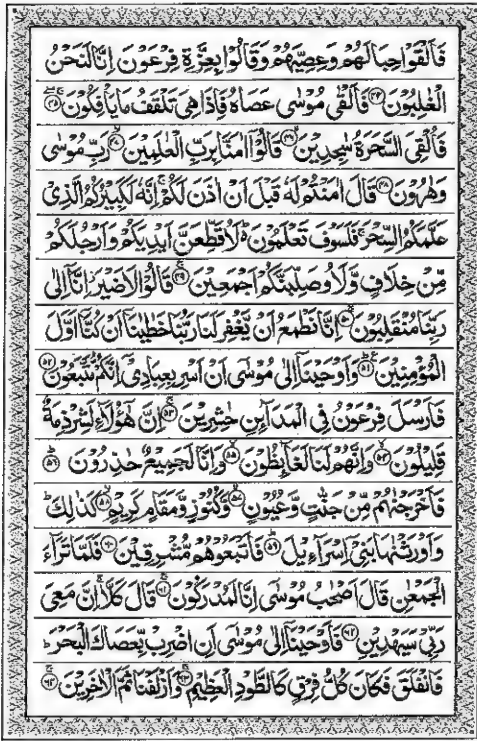 فَاَلْقَوْا حِبَالَهُمْ وَعِصِيَّهُمْ وَقَالُوْا بِعِزَّةِ فِرْعَوْنَ اِنَّا لَنَحْنُ
الْغٰلِبُوْنَ ﴿۴۴﴾ فَاَلْقٰى مُوْسٰى عَصَاهُ فَاِذَا هِيَ تَلْقَفُ مَا يَاْفِكُوْنَ ﴿۴۵﴾
فَاُلْقِيَ السَّحَرَةُ سٰجِدِيْنَ ﴿۴۶﴾ قَالُوْۤا اٰمَنَّا بِرَبِّ الْعٰلَمِيْنَ ﴿۴۷﴾ رَبِّ مُوْسٰى
وَهٰرُوْنَ ﴿۴۸﴾ قَالَ اٰمَنْتُمْ لَهٗ قَبْلَ اَنْ اٰذَنَ لَكُمْ اِنَّهٗ لَكَبِيْرُكُمُ الَّذِيْ
عَلَّمَكُمُ السِّحْرَ فَلَسَوْفَ تَعْلَمُوْنَ لَاُقَطِّعَنَّ اَيْدِيَكُمْ وَاَرْجُلَكُمْ
مِّنْ خِلَافٍ وَّلَاُوصَلِّبَنَّكُمْ اَجْمَعِيْنَ ﴿۴۹﴾ قَالُوْا لَا ضَيْرَ اِنَّاۤ اِلٰى
رَبِّنَا مُنْقَلِبُوْنَ ﴿۵۰﴾ اِنَّا نَطْمَعُ اَنْ يَّغْفِرَ لَنَا رَبُّنَا خَطٰيٰنَاۤ اَنْ كُنَّاۤ اَوَّلَ
الْمُؤْمِنِيْنَ ﴿۵۱﴾ وَاَوْحَيْنَاۤ اِلٰى مُوْسٰۤى اَنْ اَسْرِ بِعِبَادِيْۤ اِنَّكُمْ مُّتَّبَعُوْنَ ﴿۵۲﴾
فَاَرْسَلَ فِرْعَوْنُ فِى الْمَدَآىِٕنِ حٰشِرِيْنَ ﴿۵۳﴾ اِنَّ هٰۤؤُلَآءِ لَشِرْذِمَةٌ
قَلِيْلُوْنَ ﴿۵۴﴾ وَاِنَّهُمْ لَنَا لَغَآىِٕظُوْنَ ﴿۵۵﴾ وَاِنَّا لَجَمِيْعٌ حٰذِرُوْنَ ﴿۵۶﴾
فَاَخْرَجْنٰهُمْ مِّنْ جَنّٰتٍ وَّعُيُوْنٍ ﴿۵۷﴾ وَّكُنُوْزٍ وَّمَقَامٍ كَرِيْمٍ ﴿۵۸﴾ كَذٰلِكَ
وَاَوْرَثْنٰهَا بَنِيْۤ اِسْرَآءِيْلَ ﴿۵۹﴾ فَاَتْبَعُوْهُمْ مُّشْرِقِيْنَ ﴿۶۰﴾ فَلَمَّا تَرَآءَ
الْجَمْعٰنِ قَالَ اَصْحٰبُ مُوْسٰۤى اِنَّا لَمُدْرَكُوْنَ ﴿۶۱﴾ قَالَ كَلَّا اِنَّ مَعِيَ
رَبِّيْ سَيَهْدِيْنِ ﴿۶۲﴾ فَاَوْحَيْنَاۤ اِلٰى مُوْسٰۤى اَنِ اضْرِبْ بِّعَصَاكَ الْبَحْرَ
فَانْفَلَقَ فَكَانَ كُلُّ فِرْقٍ كَالطَّوْدِ الْعَظِيْمِ ﴿۶۳﴾ وَاَزْلَفْنَا ثَمَّ الْاٰخَرِيْنَ ﴿۶۴﴾